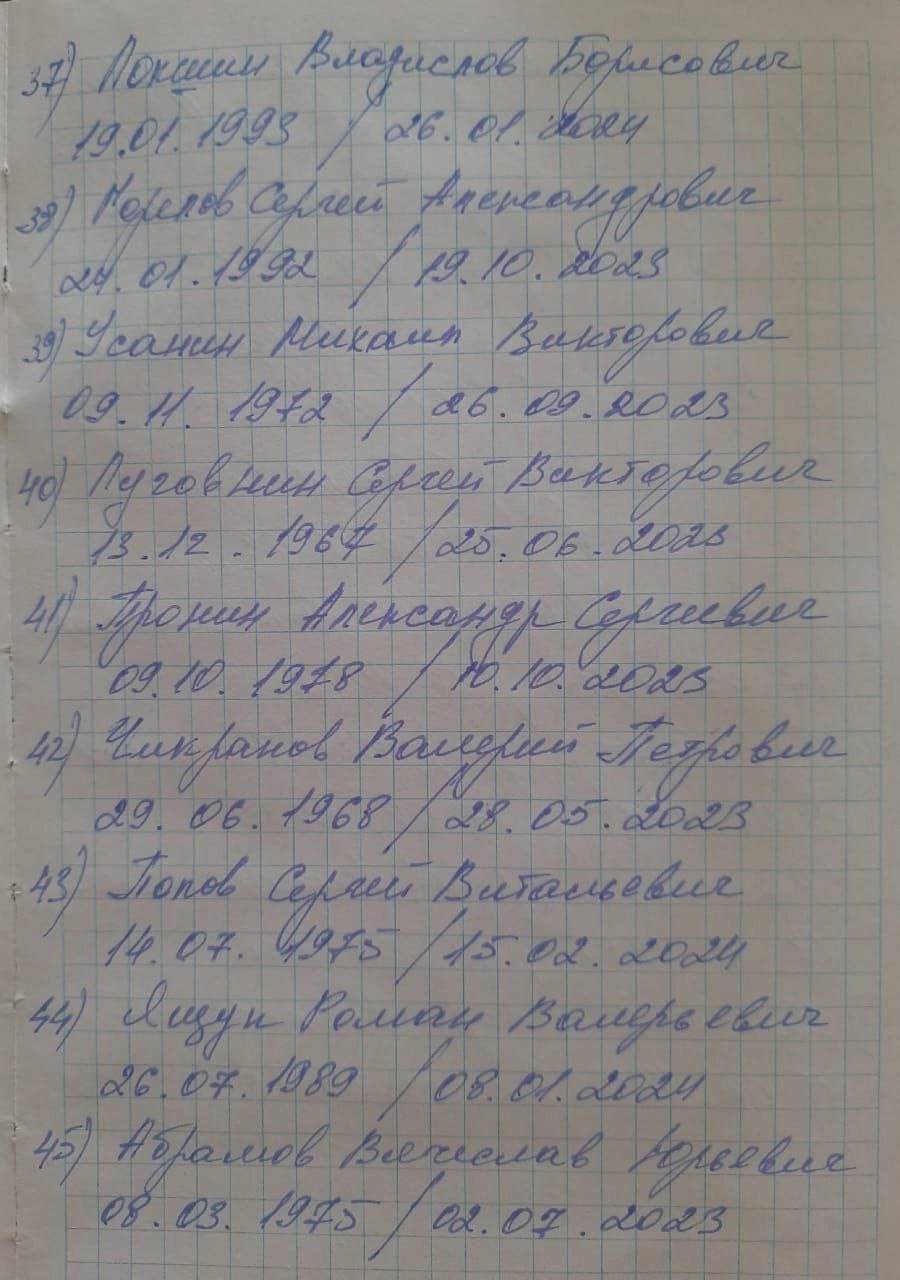 37) Локшин Владислов Борисович
19.01.1993 / 26.01.2024
38) Горлов Сергей Александрович
24.01.1992 / 19.10.2023
39) Усанин Михаил Викторович
09.11.1972 / 26.09.2023
40) Луговнин Сергей Викторович
13.12.1967 / 25.06.2023
41) Пронин Александр Сергиевич
09.10.1978 / 10.10.2023
42) Чикранов Валерий Петрович
29.06.1968 / 28.05.2023
43) Попов Сергей Витальевич
14.07.1975 / 15.02.2024
44) Ящук Роман Валерьевич
26.07.1989 / 08.01.2024
45) Абрамов Вячислав Юрьевич
08.03.1975 / 02.07.2023